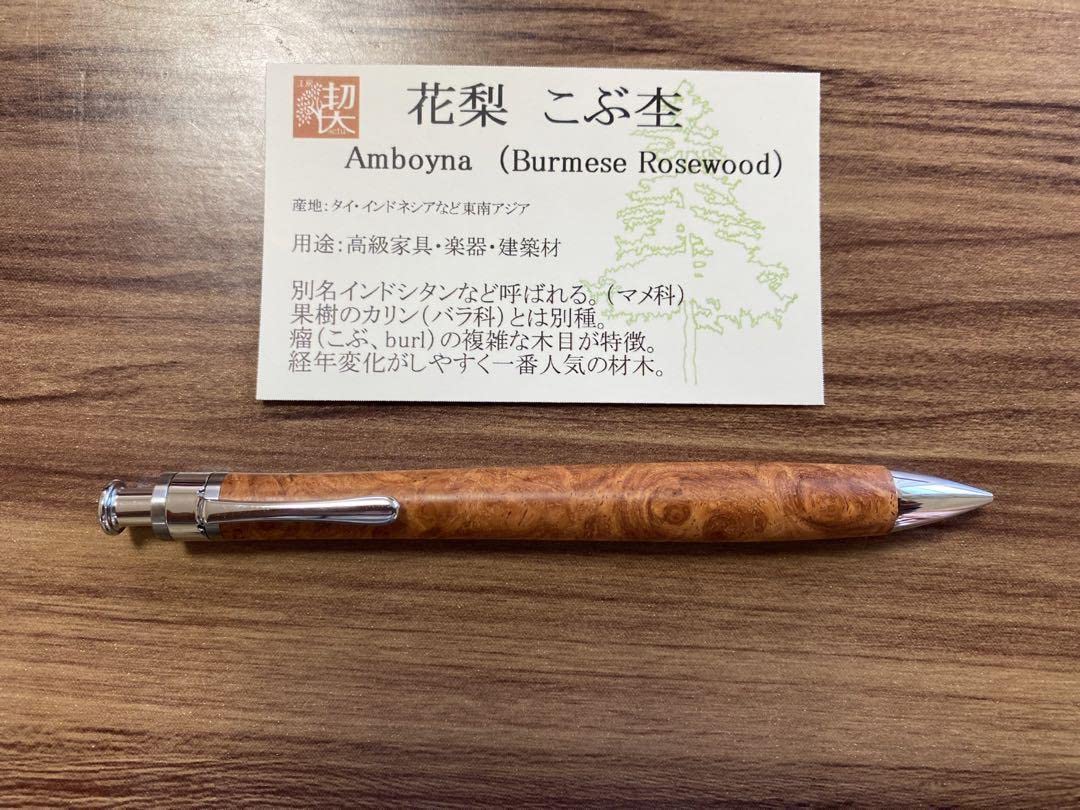 工房
契
setu
花梨 こぶ杢
Amboyna （Burmese Rosewood）
産地：タイ・インドネシアなど東南アジア
用途：高級家具・楽器・建築材
別名インドシタンなど呼ばれる。（マメ科）
果樹のカリン（バラ科）とは別種。
瘤（こぶ、burl）の複雑な木目が特徴。
経年変化がしやすく一番人気の材木。